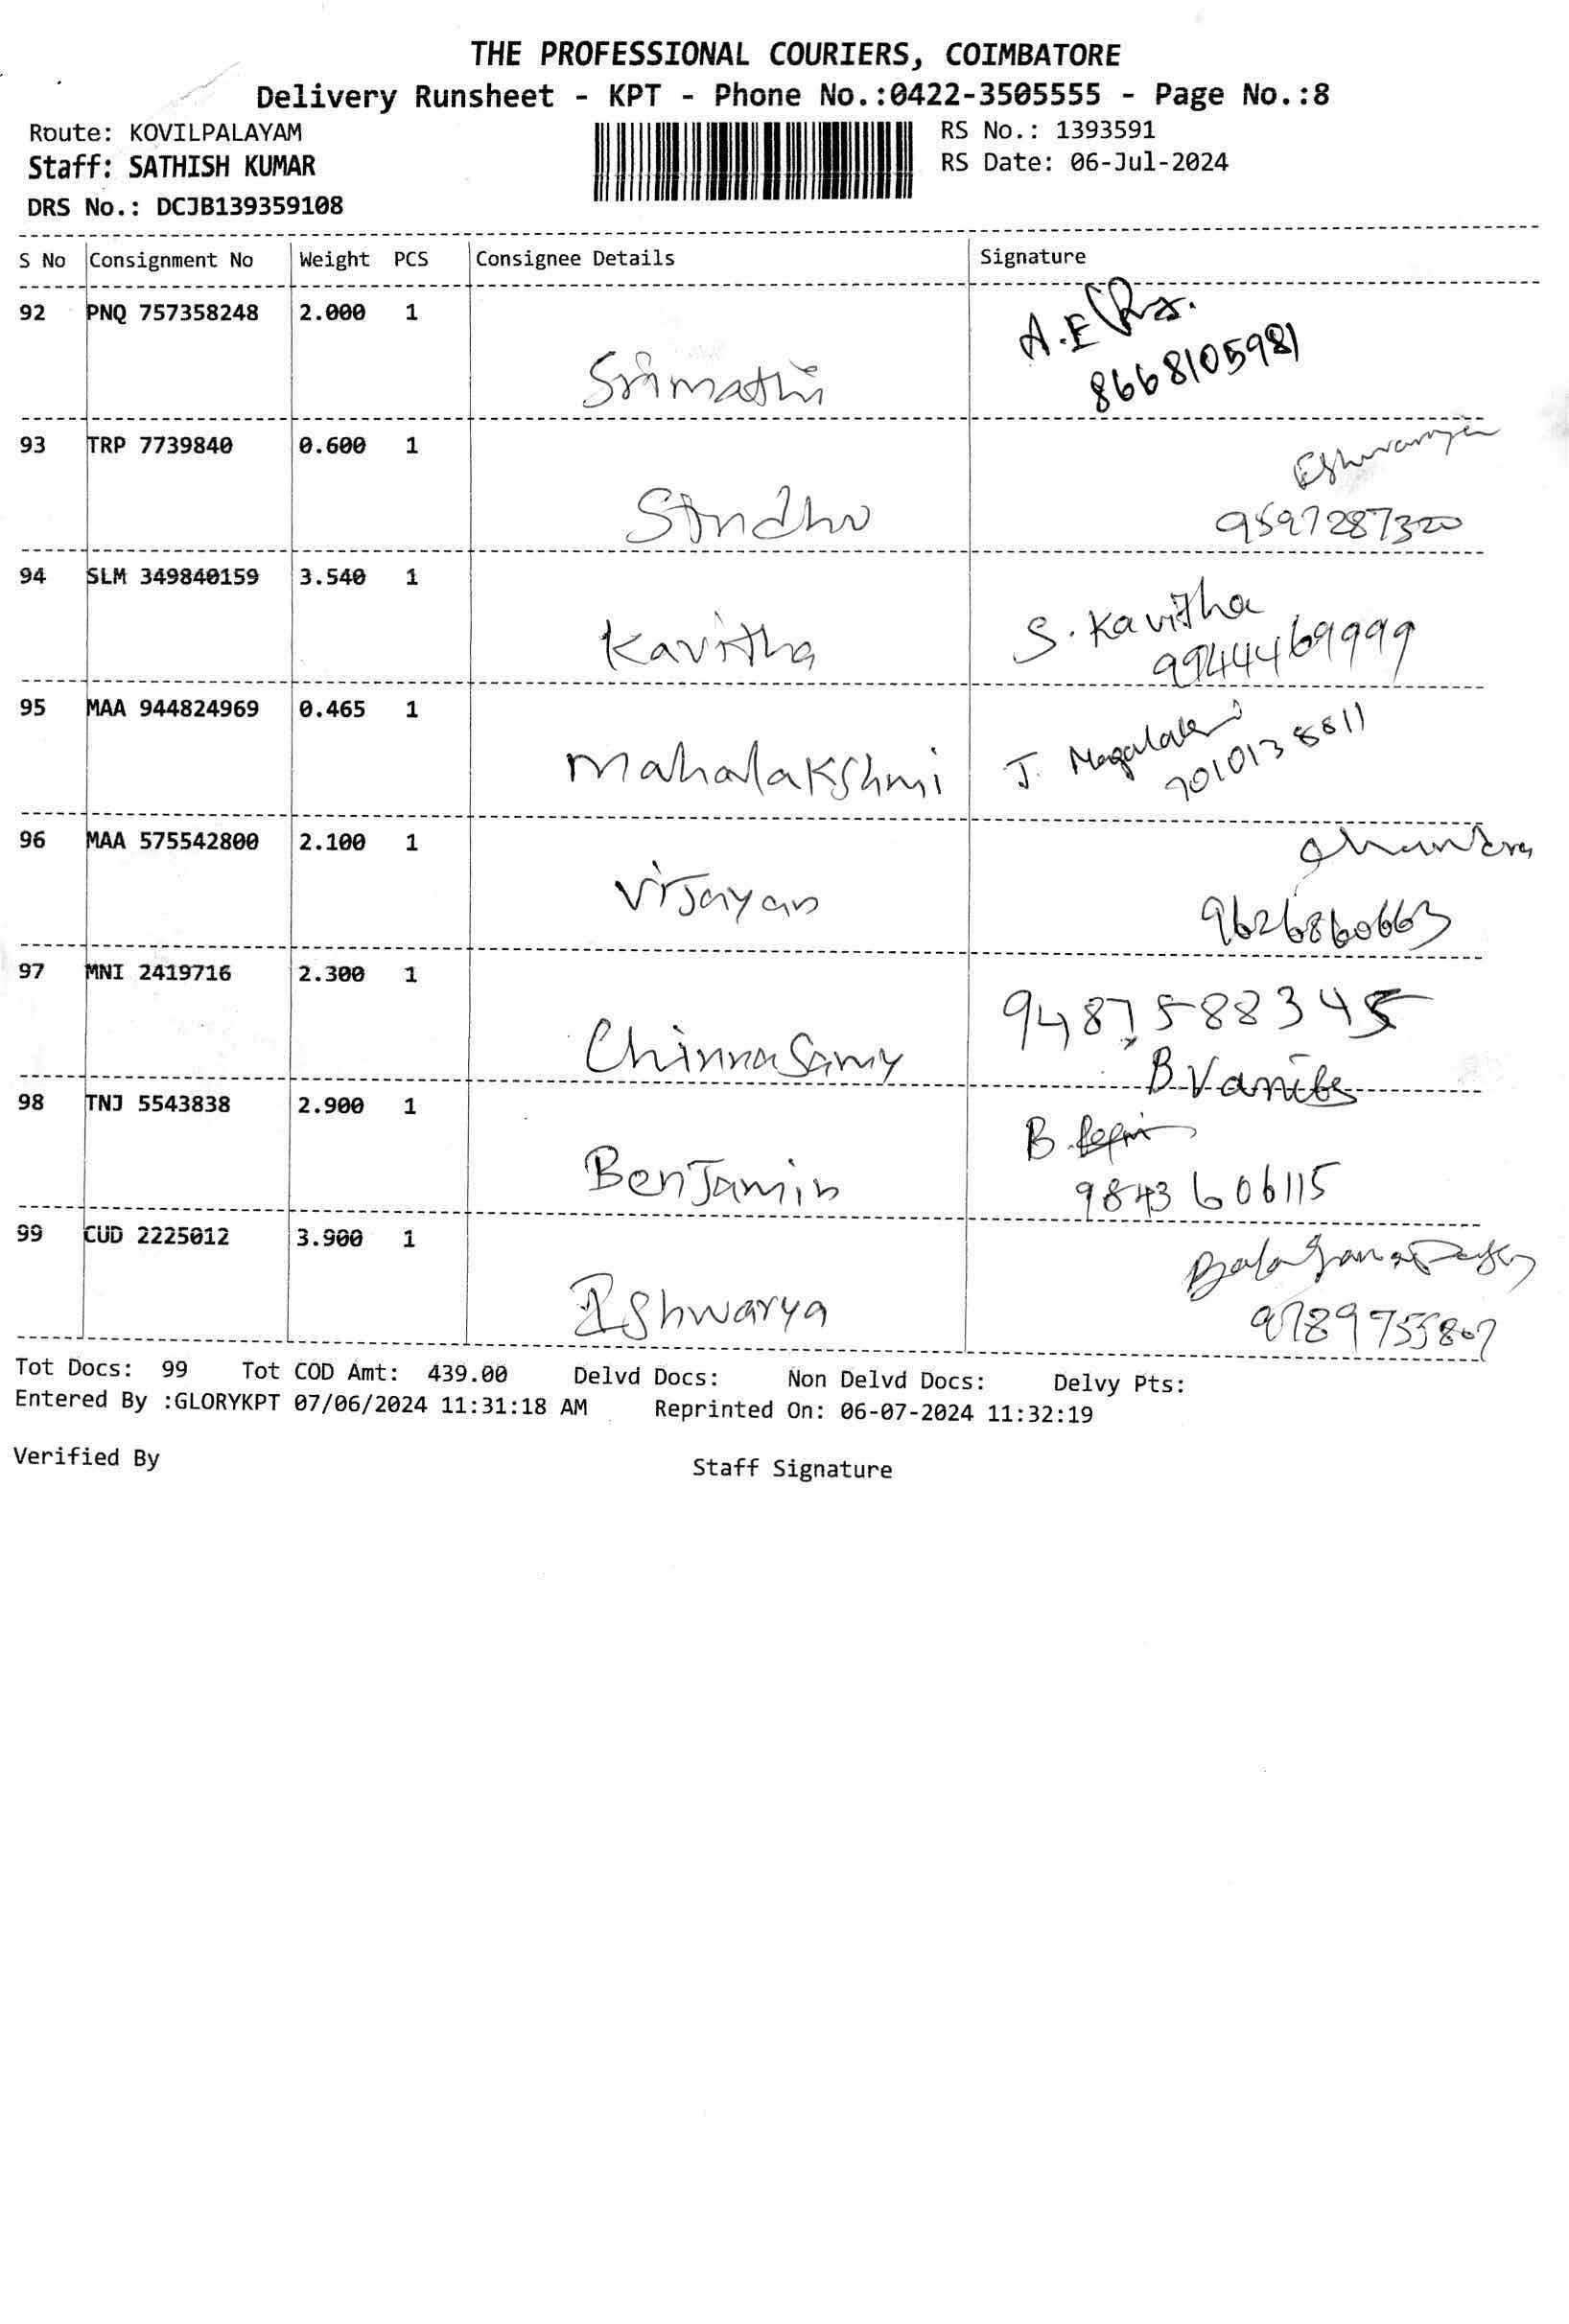 THE PROFESSIONAL COURIERS, COIMBATORE
Delivery Runsheet - KPT - Phone No.:0422-3505555 - Page No.:8
Route: KOVILPALAYAM
RS No.: 1393591
Staff: SATHISH KUMAR
RS Date: 06-Jul-2024
DRS No.: DCJB139359108
S No Consignment No Weight PCS Consignee Details Signature
92 PNQ 757358248 2.000 1
Srimathi
8668105981
93 TRP 7739840 0.600 1
Eshwarya
Sindhu
9597287320
94 SLM 349840159 3.540 1
Kavitha
S. Kavitha
9944469999
95 MAA 944824969 0.465 1
Mahalakshmi
J.
8811
96 MAA 575542800 2.100 1
Vijayan
9626860663
97 MNI 2419716 2.300 1
9487588345
Chinnasamy
B. Vanitha
98 TNJ 5543838 2.900 1
B.
Benjamin
9843606115
99 CUD 2225012 3.900 1
Ishwarya
9789755807
Tot Docs: 99 Tot COD Amt: 439.00 Delvd Docs: Non Delvd Docs: Delvy Pts:
Entered By :GLORYKPT 07/06/2024 11:31:18 AM Reprinted On: 06-07-2024 11:32:19
Verified By
Staff Signature